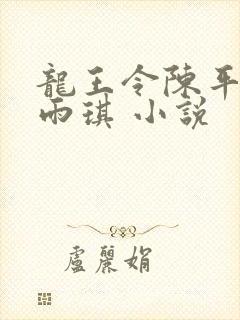 龍王令陳平
雨琪 小說
盧麗娟